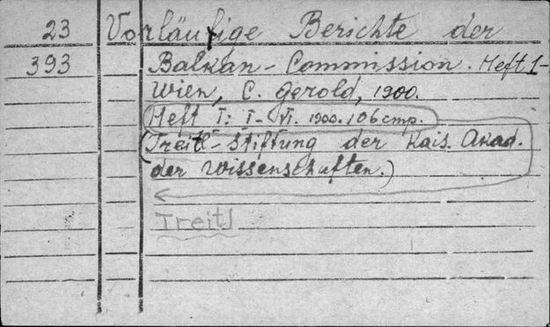 23 Vorläufige Berichte der
393 Balkan-Commission. Heft 1-
Wien, C. Gerold, 1900.
Heft I: I-VI. 1900. 106 стр.
(Treitl-Stiftung der Kais. Akad.
der Wissenschaften.)
Treitl